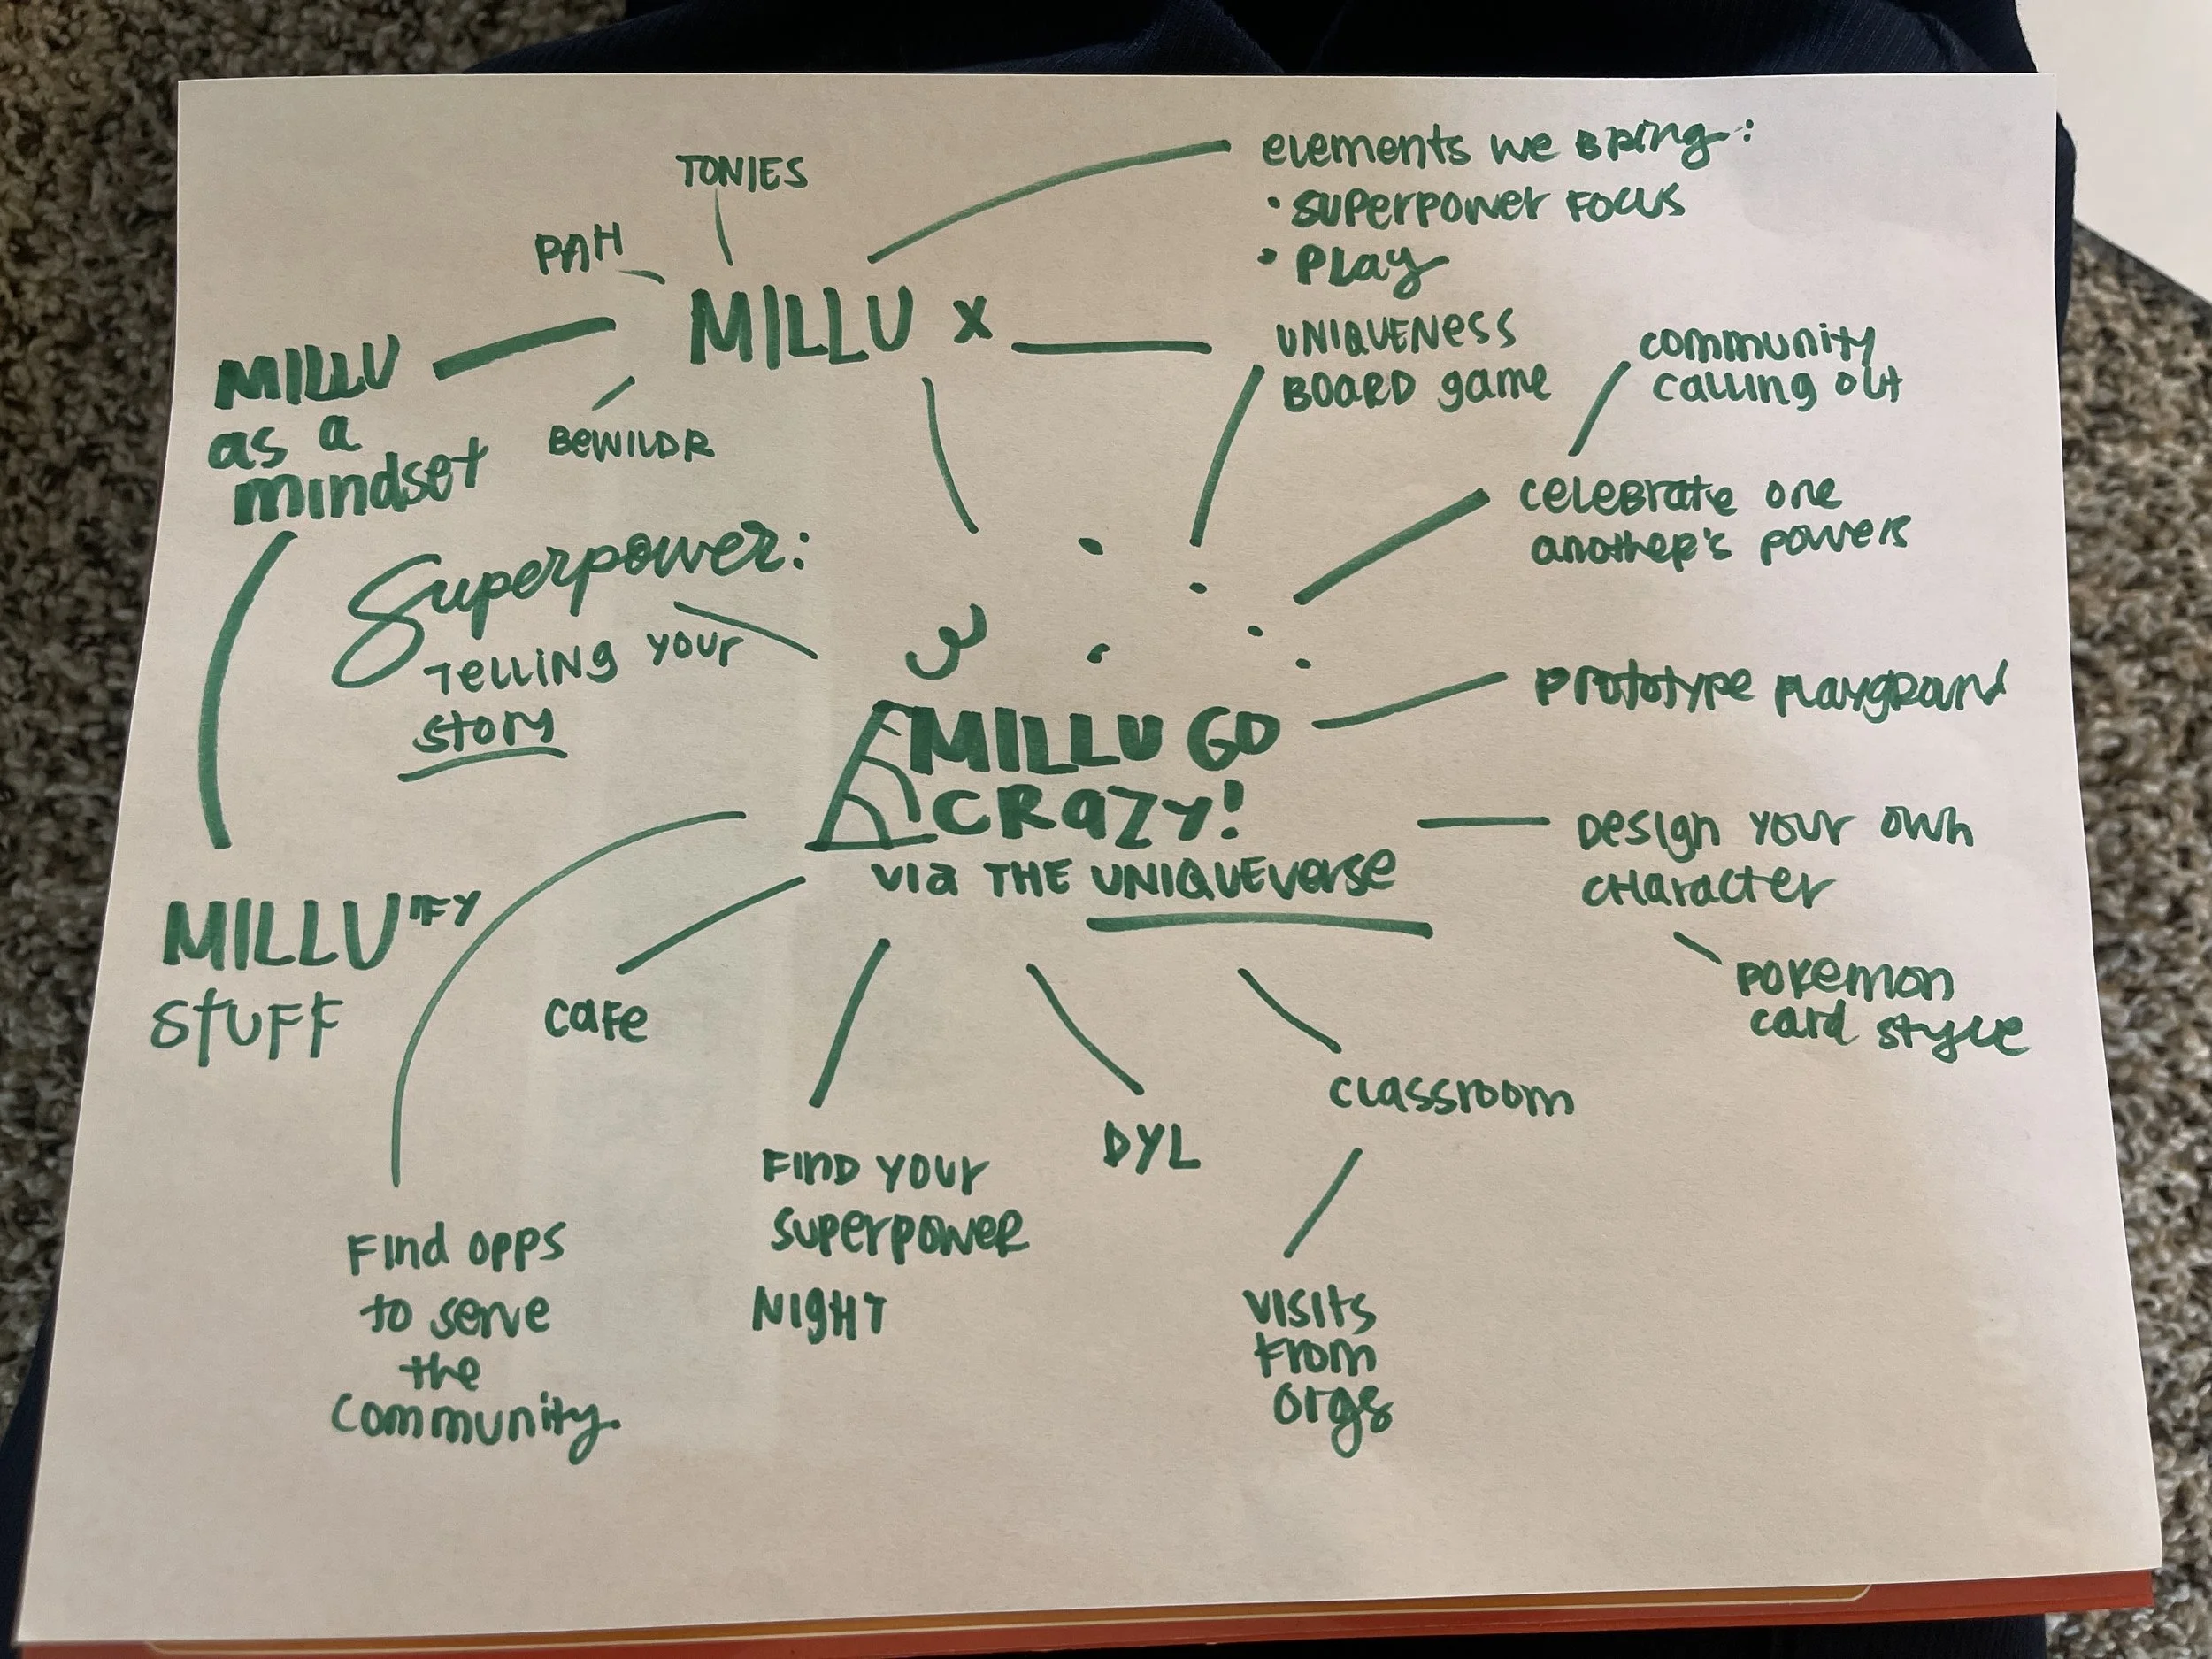 TONIES
PAH
MILLU x
BEWILDR
elements we BRing:
• SUPERPOWER FOCUS
• PLay
UNIQUENESS
BOARD game
community
calling out
MILLU
as a
mindset
celebrate one
another's powers
Superpower:
TELLING your
story
prototype playground
MILLU GO
CRAZY!
via THE UNIQUEverse
Design your own
character
pokemon
card style
MILLU"IFY
STUFF
cafe
classroom
DYL
FIND YOUR
SUPERPOWER
NIGHT
visits
from
orgs
Find opps
to serve
the
community.